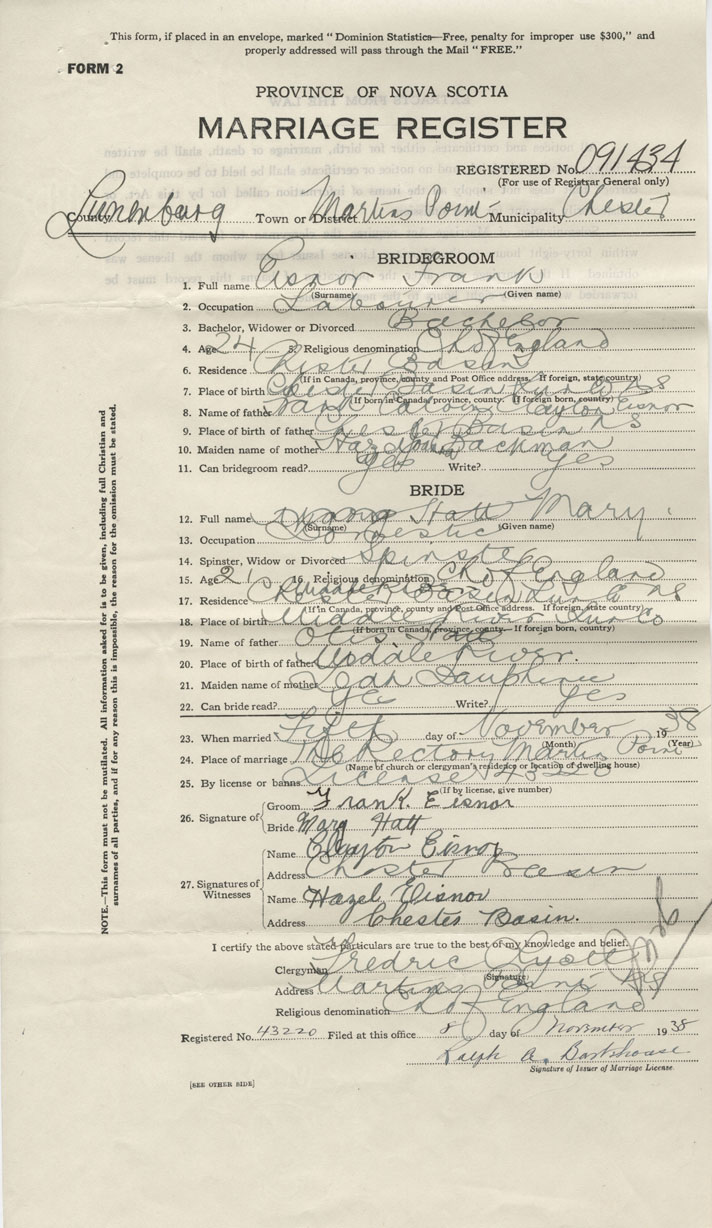 This form, if placed in an envelope, marked "Dominion Statistics—Free, penalty for improper use $300," and
properly addressed will pass through the Mail "FREE."
FORM 2
PROVINCE OF NOVA SCOTIA
MARRIAGE REGISTER
REGISTERED No. 091434
(For use of Registrar General only)
County Lunenburg Town or District Martins Point Municipality Chester
BRIDEGROOM
1. Full name Eisnor Frank
(Surname) (Given name)
2. Occupation Labourer
3. Bachelor, Widower or Divorced Bachelor
4. Age 24 5. Religious denomination Ch of England
6. Residence Chester Basin
(If in Canada, province, county and Post Office address. If foreign, state country)
7. Place of birth Chester Basin Lun Co NS
(If born in Canada, province, county. If foreign, country)
8. Name of father Clayton Eisnor
9. Place of birth of father Chester Basin NS
10. Maiden name of mother Hazel Backman
11. Can bridegroom read? Yes Write? Yes
BRIDE
12. Full name Hatt Mary
(Surname) (Given name)
13. Occupation Domestic
14. Spinster, Widow or Divorced Spinster
15. Age 21 16. Religious denomination Ch of England
17. Residence Chester Basin Lun Co NS
(If in Canada, province, county and Post Office address. If foreign, state country)
18. Place of birth Middle River Lun Co
(If born in Canada, province, county— If foreign, country)
19. Name of father Otis Hatt
20. Place of birth of father Middle River.
21. Maiden name of mother Leah Dauphinee
22. Can bride read? Yes Write? Yes
23. When married Fifth day of November 1938
(Month) (Year)
24. Place of marriage The Rectory Martins Point
(Name of church or clergyman's residence or location of dwelling house)
25. By license or banns License 43220
(If by license, give number)
26. Signature of
Groom Frank Eisnor
Bride Mary Hatt
27. Signatures of Witnesses
Name Clayton Eisnor
Address Chester Basin
Name Hazel Eisnor
Address Chester Basin.
I certify the above stated particulars are true to the best of my knowledge and belief.
Clergyman Fredric Ryott
(Signature)
Address Martins Point NS
Religious denomination Ch of England
Registered No. 43220 Filed at this office 8 day of November 1938
Ralph A. Barkhouse
Signature of Issuer of Marriage License.
[SEE OTHER SIDE]
NOTE.—This form must not be mutilated. All information asked for is to be given, including full Christian and
surnames of all parties, and if for any reason this is impossible, the reason for the omission must be stated.